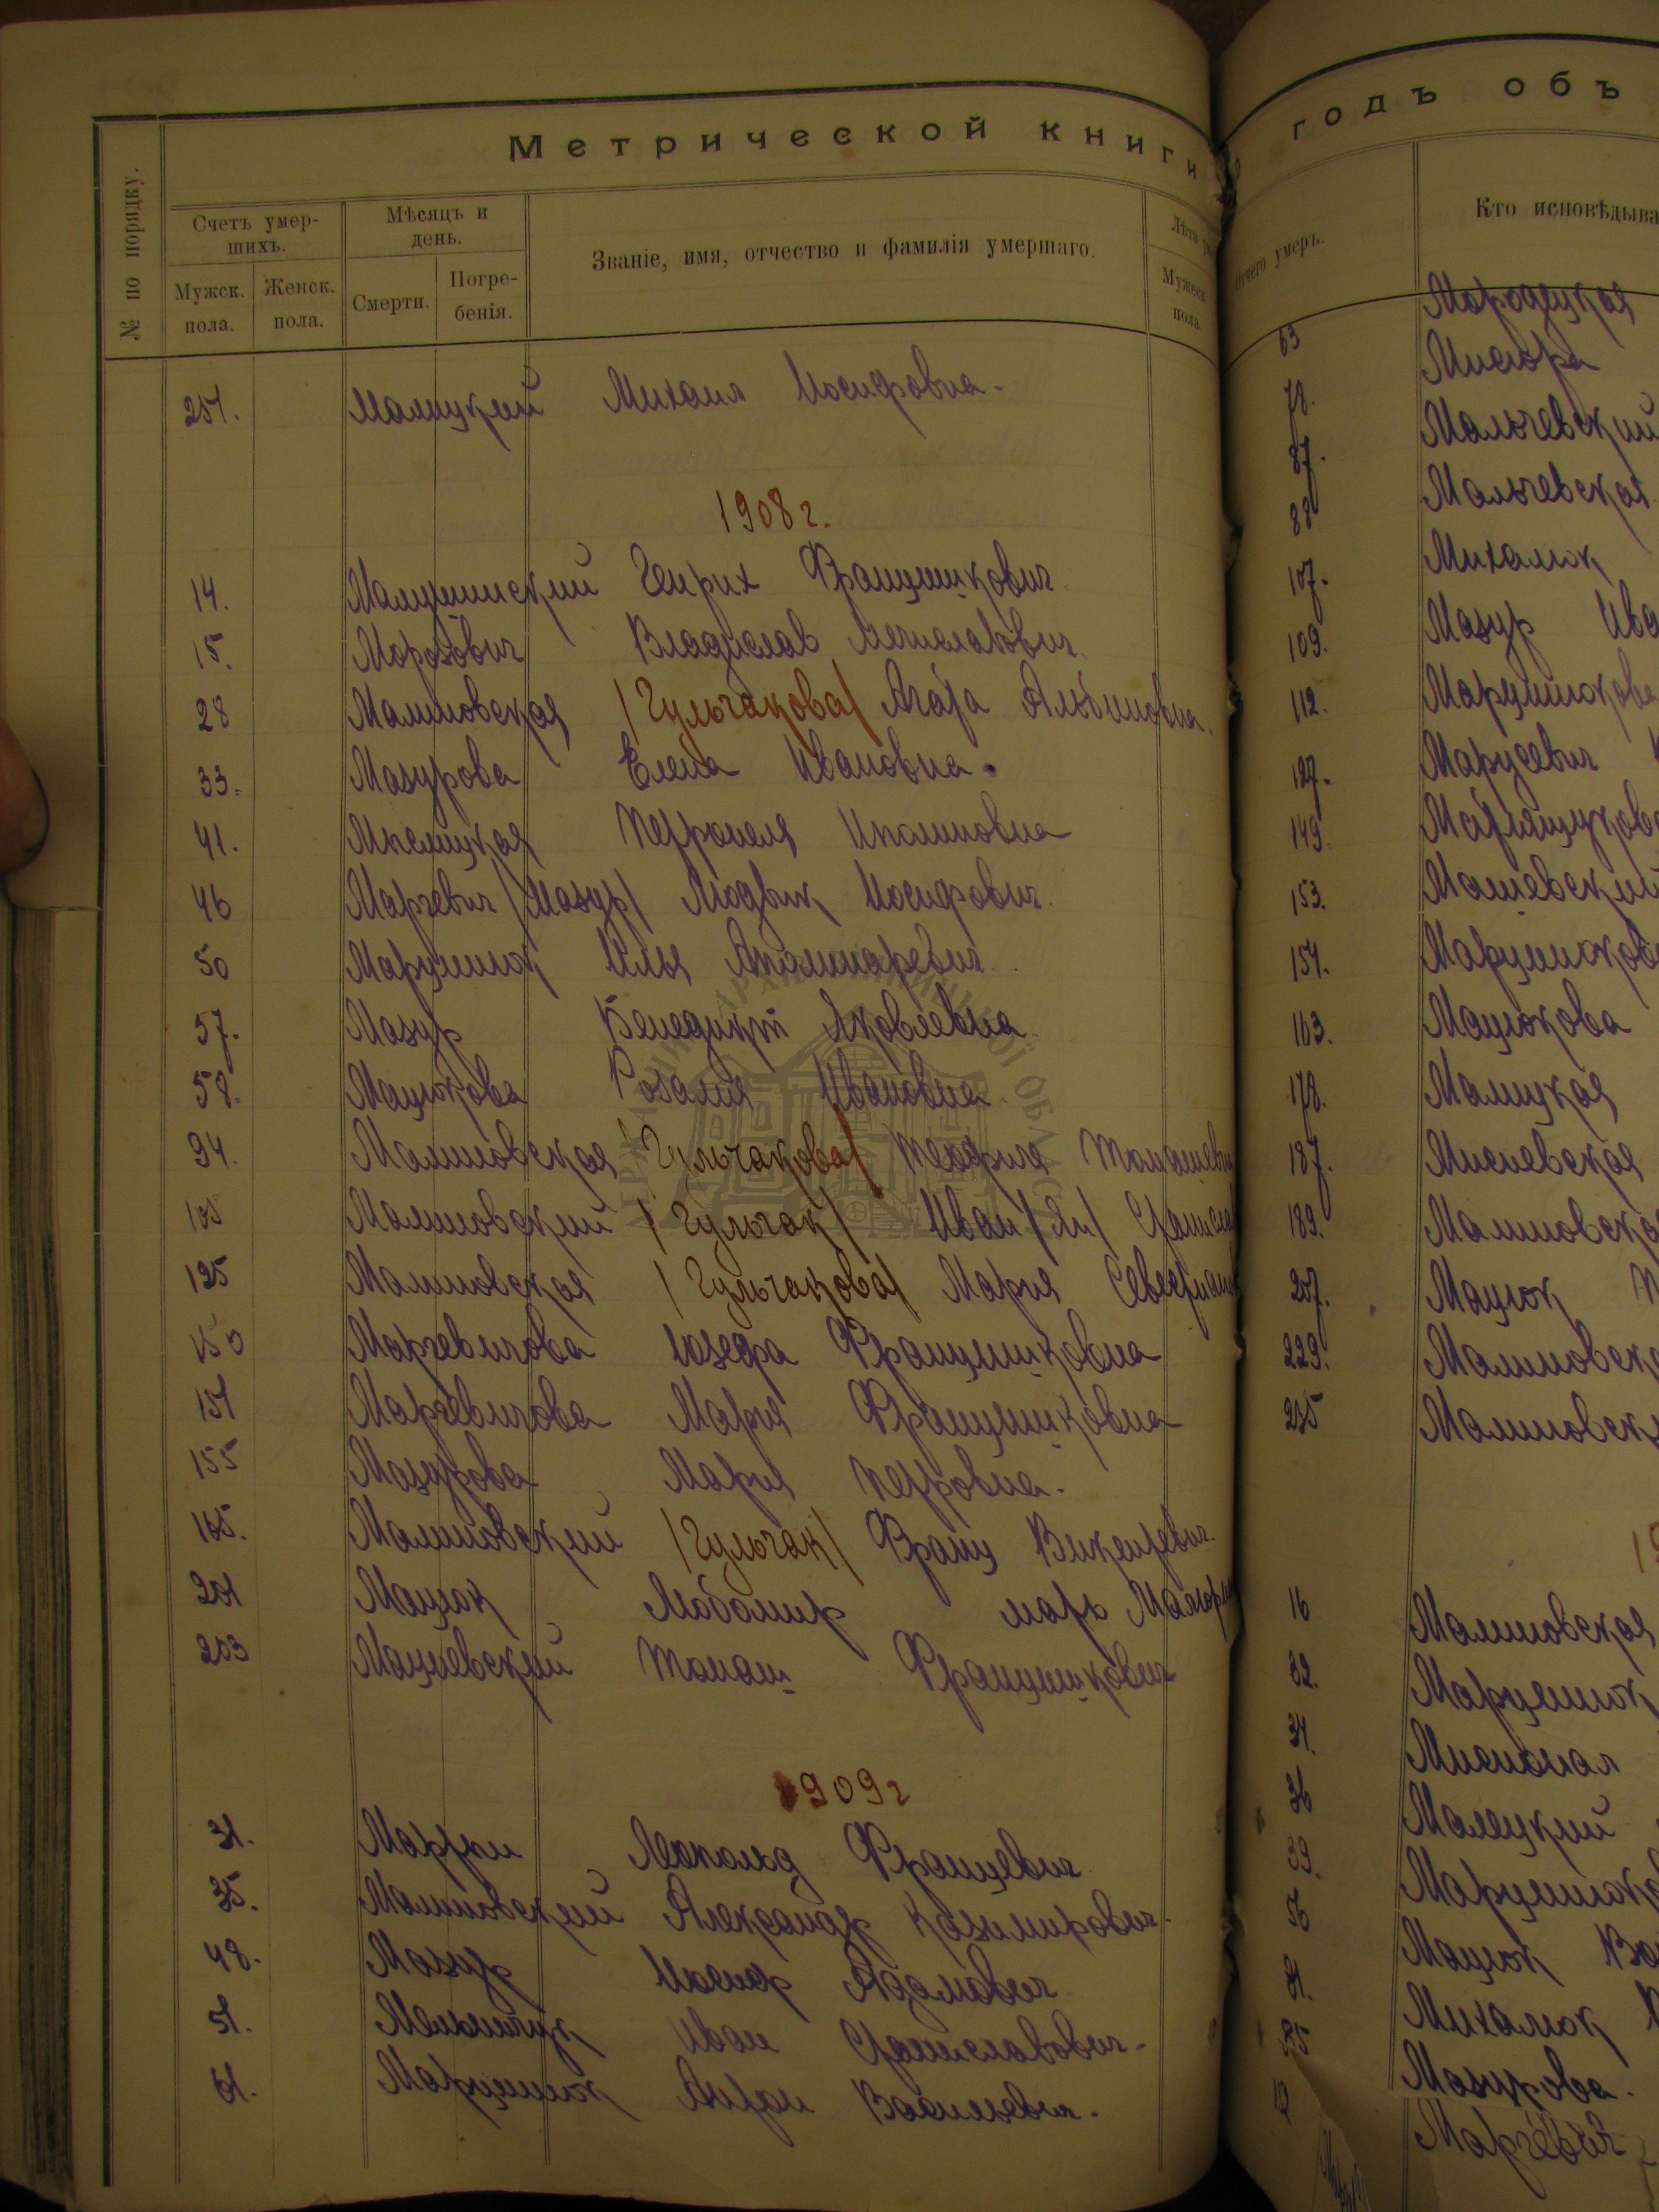 Метрической книги
№ по порядку.
Счетъ умер-
шихъ.
Мужск.
пола.
Женск.
пола.
Мѣсяцъ и
день.
Смерти.
Погре-
бенія.
Званіе, имя, отчество и фамилія умершаго.
Лѣта
Мужеск.
пола.
251. Малицкий Михаил Иосифовна.
1908 г.
14. Генрих Францишкович
15. Морозович Владислав Мечиславович
28 Малиновская /Гульчакова/ Агата Альбиновна.
33. Мазурова Елена Ивановна.
41. Петронеля
46 Марчевич /Мазур/ Людвик Иосифович
50 Марцинюк Илья Аполинаревич
57. Мазур Бенедикт Яковлевна
58. Мацюкова Розалия Ивановна
94. Малиновская /Гульчакова/ Теофиля
105 Малиновский /Гульчак/ Иван /Ян/
125 Малиновская /Гульчакова/ Мария
150 Марчевичова Юзефа Францишковна
151 Марчевичова Мария Францишковна
155 Мазурова Мария Петровна.
165. Малиновский /Гульчак/ Франц Викентевич.
201 Мацюк Любомир
203 Мацеевский Томаш Францишкович
1909 г
31. Мартын Леопольд Францевич
35. Малиновский Александр Казимирович.
48. Мазур Иосиф Адамович
51. Мельничук Иван Станиславович.
61. Марцинюк Антон Васильевич.
годъ объ
Отчего умеръ.
Кто исповѣдыва
63 Мародецкая
78. Мисюра
87. Мальчевский
88 Мальчевская
107. Михалюк
109. Мазур Ива
112. Марцинюкова
127. Марусевич
149. Мартынщукова
153. Мацевский
154. Марцинюкова
163. Мацюкова
178. Малицкая
187. Мисневская
189. Малиновска
207. Мацюк
229. Малиновск
235 Малиновск
16 Малиновская
32. Марцинюк
34.
36 Малецкий
39. Марцинюк
56 Мацюк
81. Михалюк
85 Мазурова.
Марчевич